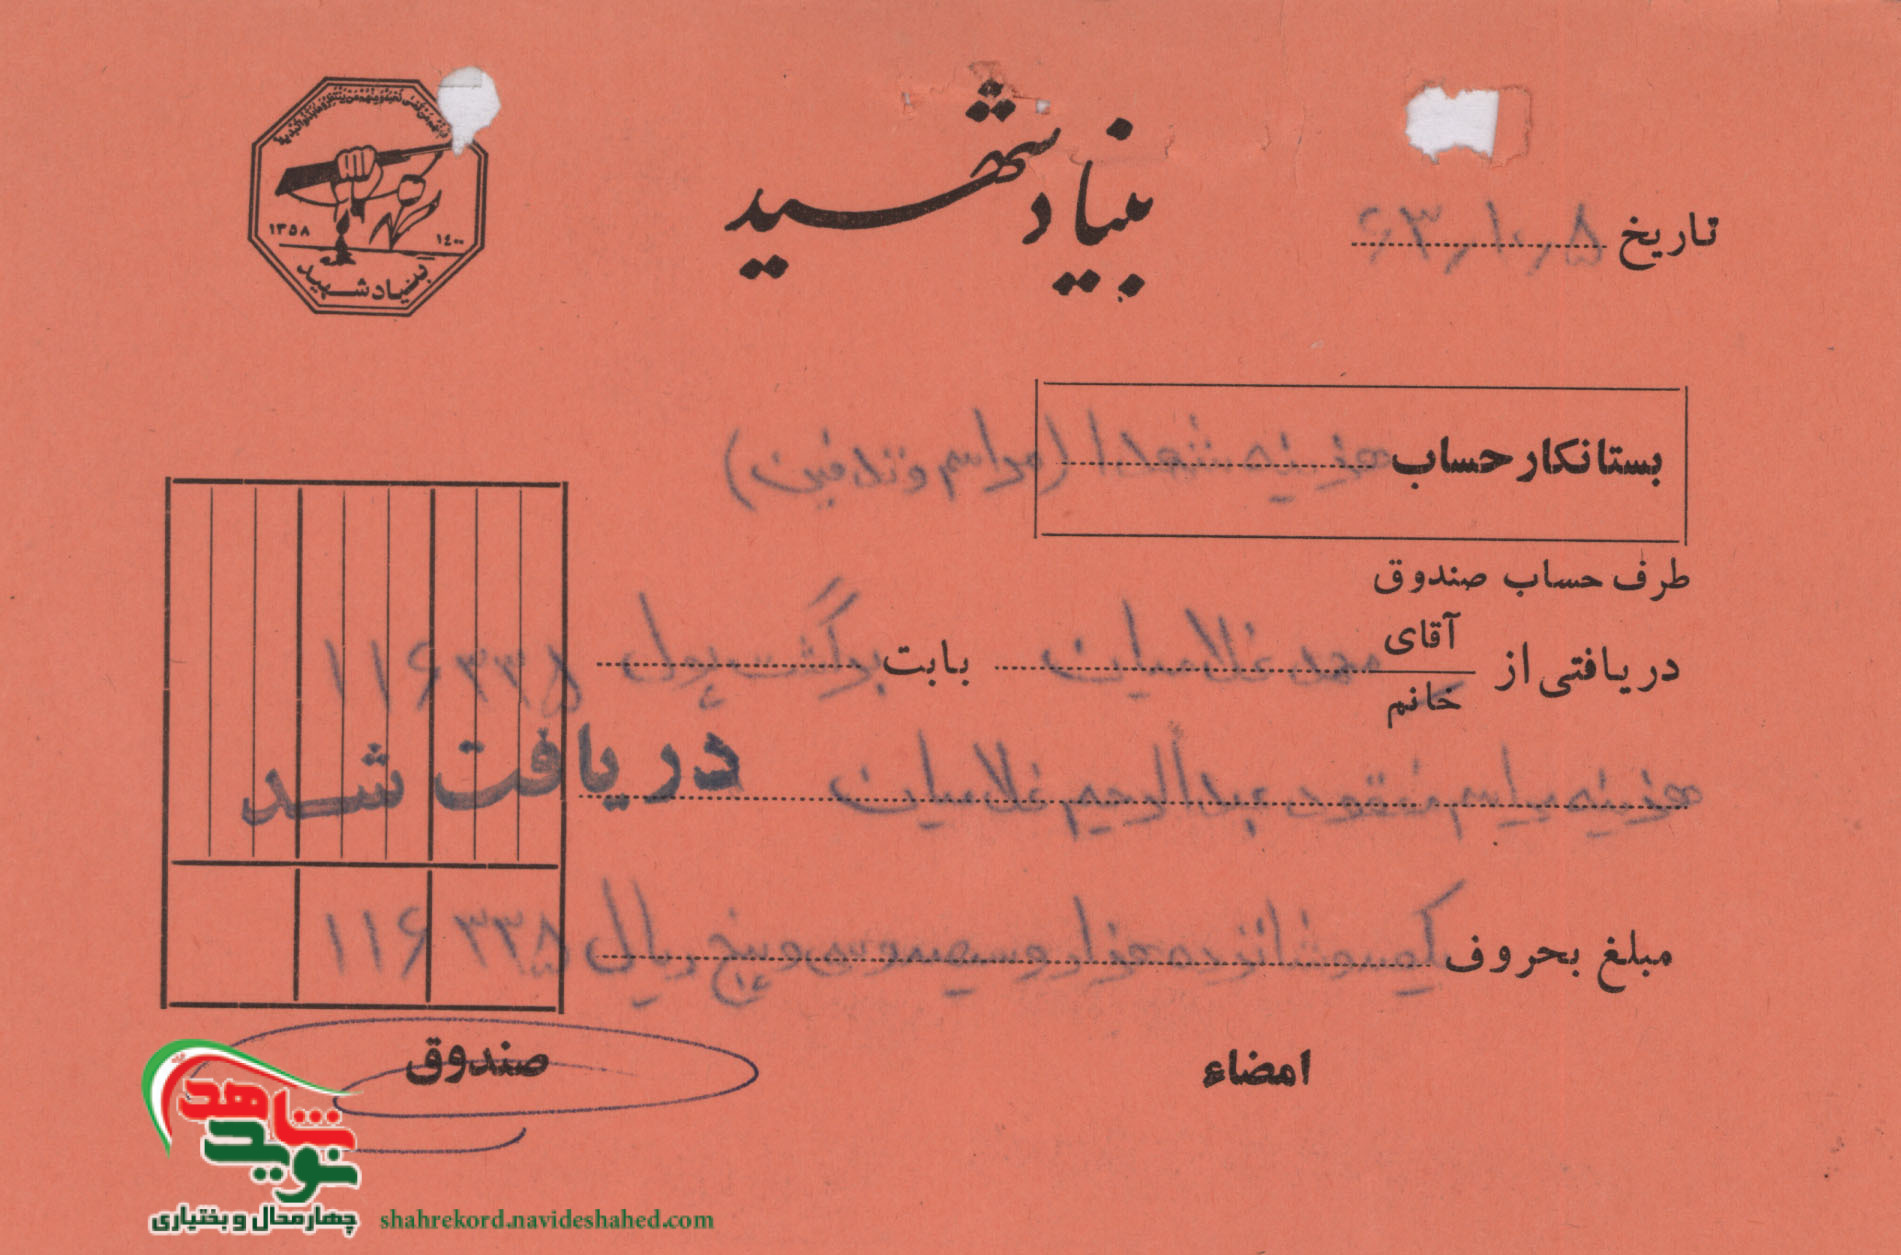 بنیاد شهید
تاریخ ۶۳٫۱۰٫۵
۱۳۵۸ ۱۴۰۰
بنیاد شهید
بستانکار حساب هزینه شهدا (مراسم و تدفین)
طرف حساب صندوق
دریافتی از آقای خانم محمد غلامیان بابت برگشت پول ۱۱۶۳۳۵
هزینه مراسم مفقود عبدالرحیم غلامیان
دریافت شد
مبلغ بحروف یکصد و شانزده هزار و سیصد و سی و پنج ریال ۱۱۶۳۳۵
امضاء صندوق
نوید شاهد
چهارمحال و بختیاری shahrekord.navideshahed.com